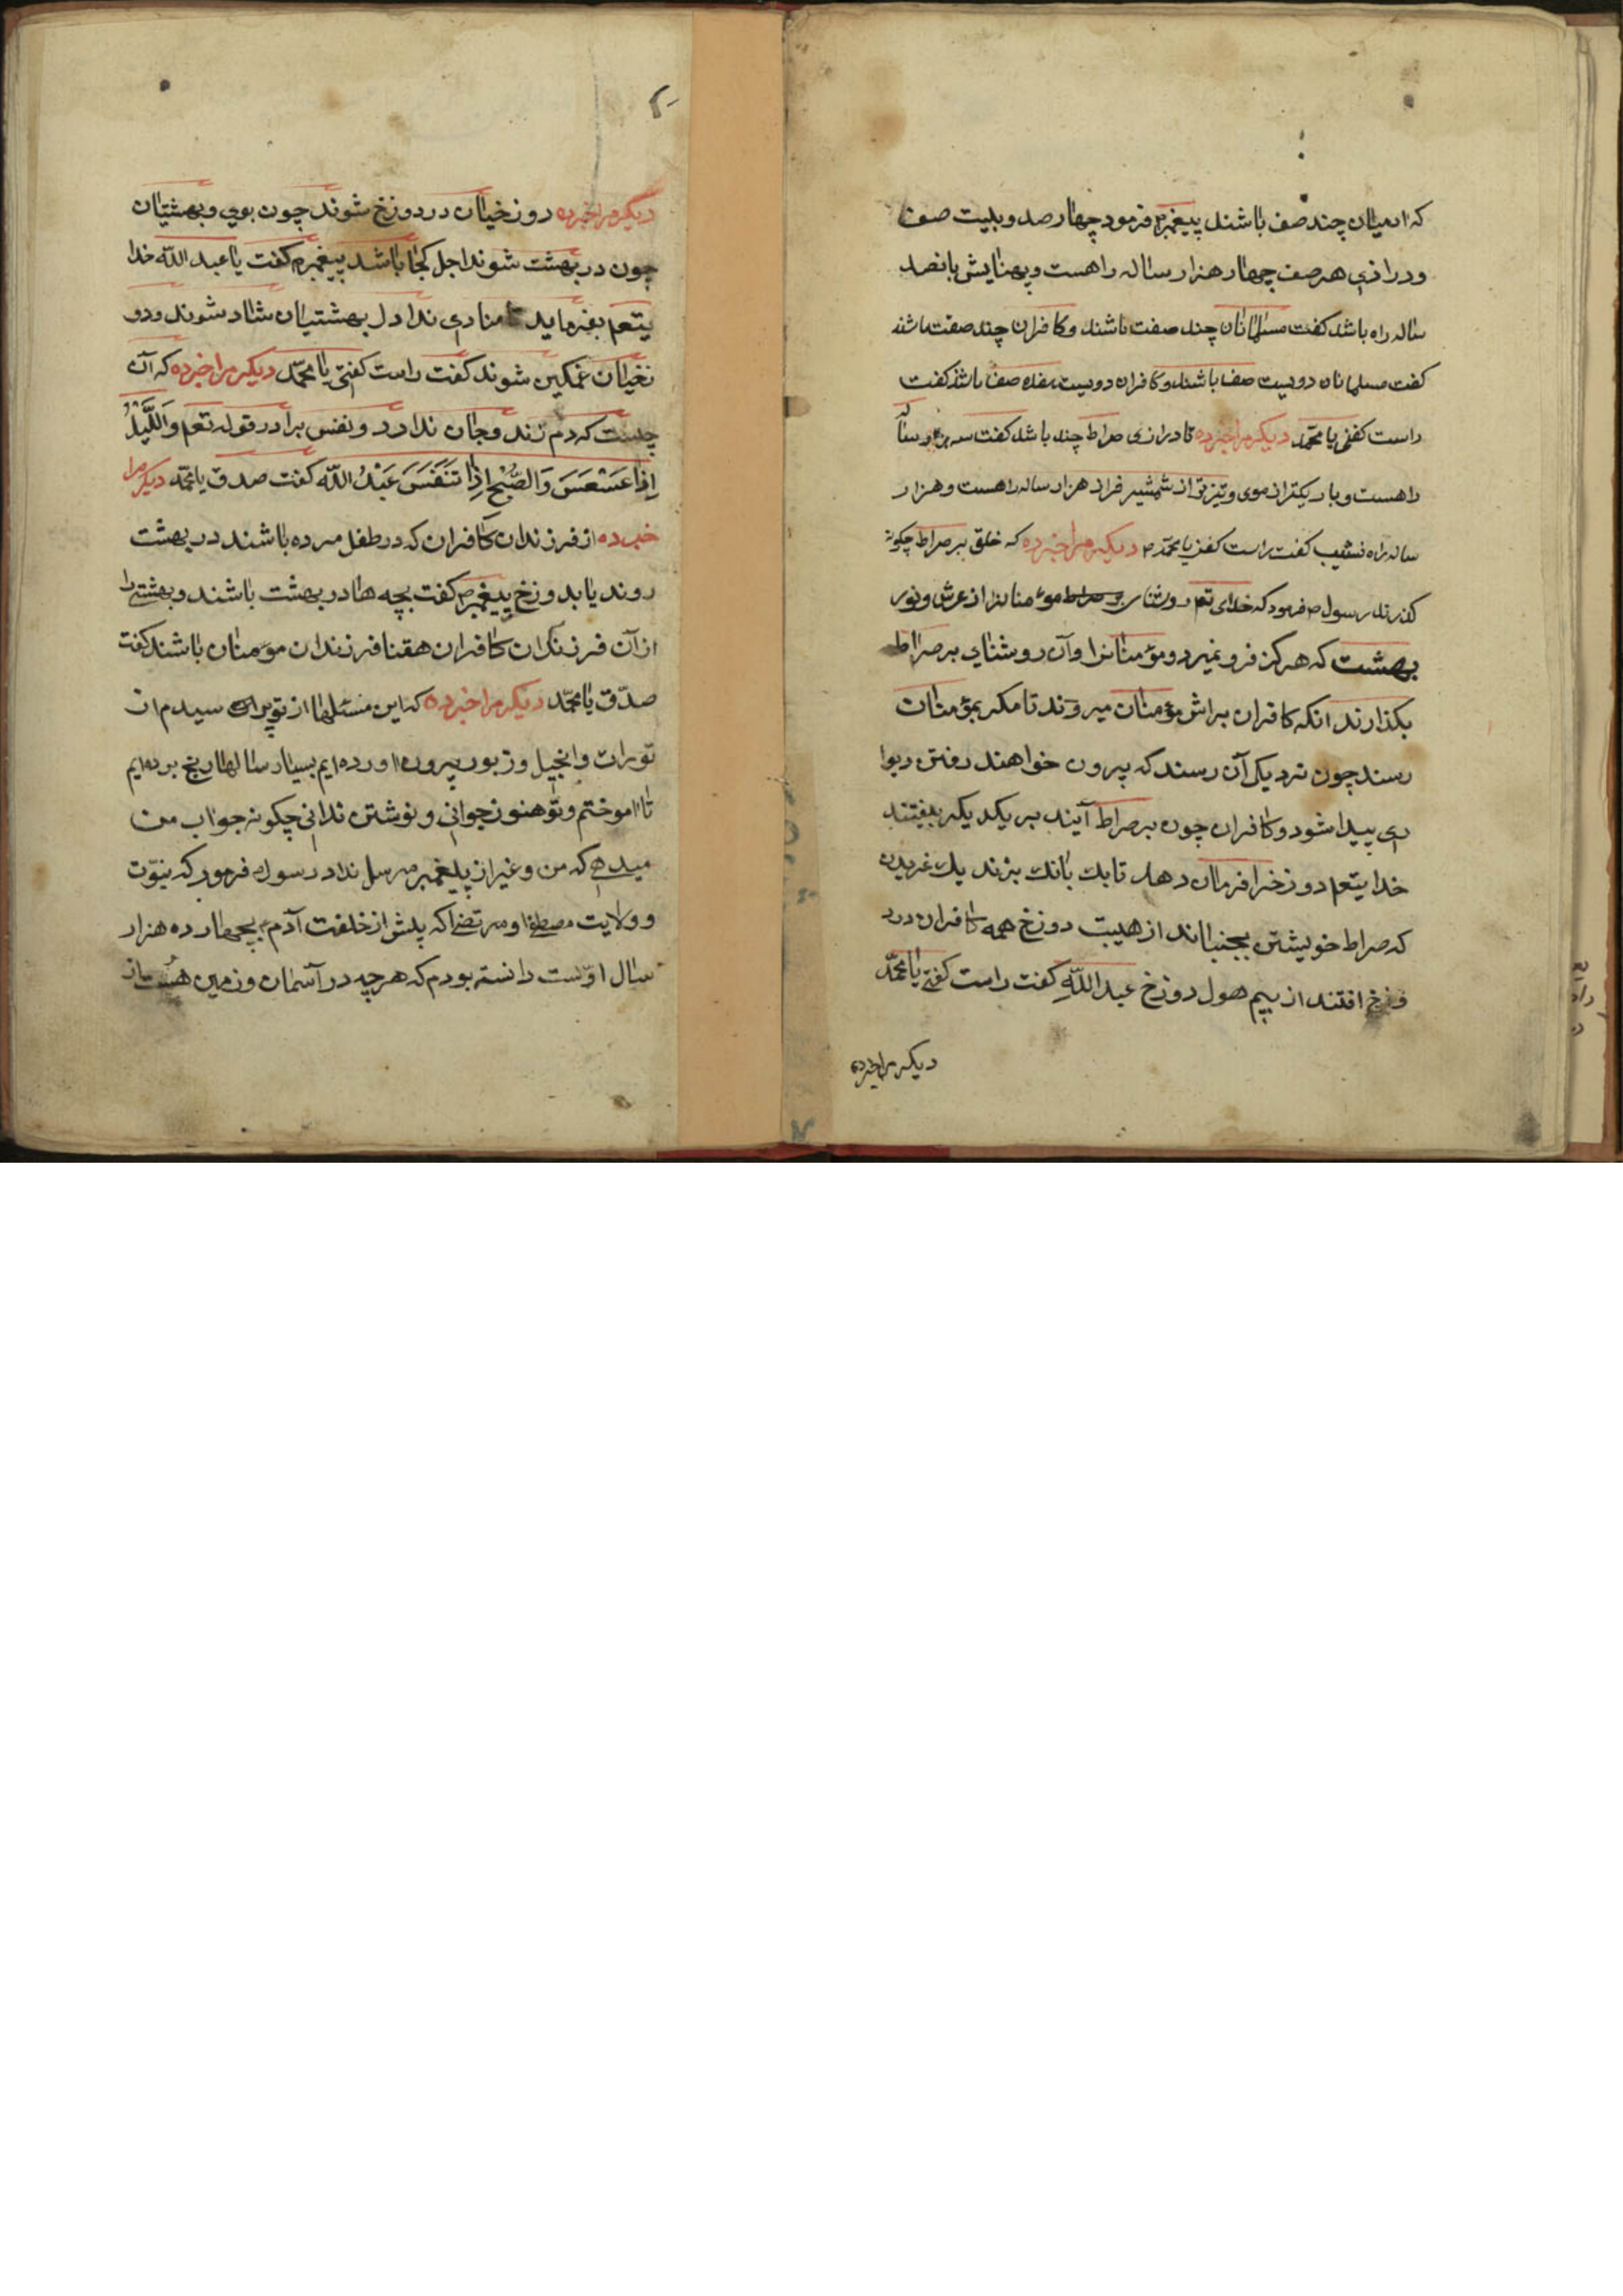 که ادمیان چند صف باشند پیغمبرم فرمود چهار صد و بیست صف
و درازی هر صف چهار هزار ساله راهست و پهنایش پانصد
ساله راه باشد کفت مسلمانان چند صفت باشند و کافران چند صفت باشند
کفت مسلمانان دویست صف باشند و کافران دویست صف باشند کفت
راست کفتی یا محمّد دیکر مرا خبر ده تا درازی صراط چند باشد کفت سه هزار ساله
راهست و باریکتر از موی و تیزتر از شمشیر فراز هزار ساله راهست و هزار
ساله راه نشیب کفت راست کفتی یا محمّد م دیکر مرا خبر ده که خلق بر صراط چکونه
کذرند رسول م فرمود که خدای تعم روشنای بر صراط موءمنانرا از عرش و نور
بهشت که هرکز فرو نمیرد و موءمنانرا و آن روشنای بر صراط
بکذارند انکه کافران براش موءمنان میروند تا مکر بموءمنان
رسند چون نزدیک آن رسند که بیرون خواهند رفتن دیوا
ری پیدا شود و کافران چون بر صراط آیند بر یکدیکر بیفتند
خدایتعم دوزخرا فرمان دهد تا یک بانک بزند یک غریدن
که صراط خویشتن بجنباند از هیبت دوزخ همه کافران در د
وزخ افتند از بیم هول دوزخ عبد اللّه کفت راست کفتی یا محمّد
دیکر مرا خبر ده
دیکر مرا خبر ده دوزخیان در دوزخ شوند چون بوی و بهشتیان
چون در بهشت شوند اجل کجا باشد پیغمبرم کفت یا عبد اللّه خدا
یتعم بفرماید تا منادی ندا دل بهشتیان شاد شوند و دو
زخیان غمکین شوند کفت راست کفتی یا محمّد دیکر مرا خبر ده که آن
چیست که دم زند و جان ندارد و نفس برادر قوله تعم وَاللَّیْلِ
اِذا عَسْعَسَ وَالصُّبْحِ اِذا تَنَفَّسَ عَبْدُ اللّه کفت صدق یا محمّد دیکر مرا
خبر ده از فرزندان کافران که در طفل مرده باشند در بهشت
روند یا بدوزخ پیغمبرم کفت بچه ها در بهشت باشند و بهشتی را
از آن فرزندان کافران هقنا فرزندان موءمنان باشند کفت
صدّق یا محمّد دیکر مرا خبر ده که این مسئلها از تو پر سیدم از
تورات و انجیل و زبور بیرون اورده ایم بسیار سالها رنج برده ایم
تا اموختم و تو هنوز جوانی و نوشتن ندانی چکونه جواب من
میدهی که من و غیر از پیغمبر مرسل نداد رسول م فرمود که نبوّت
و ولایت مصطفا و مرتضا که پیش از خلفت آدم ع بچهار ده هزار
سال اوّست دانسته بودم که هر چه در آسمان و زمین هست از